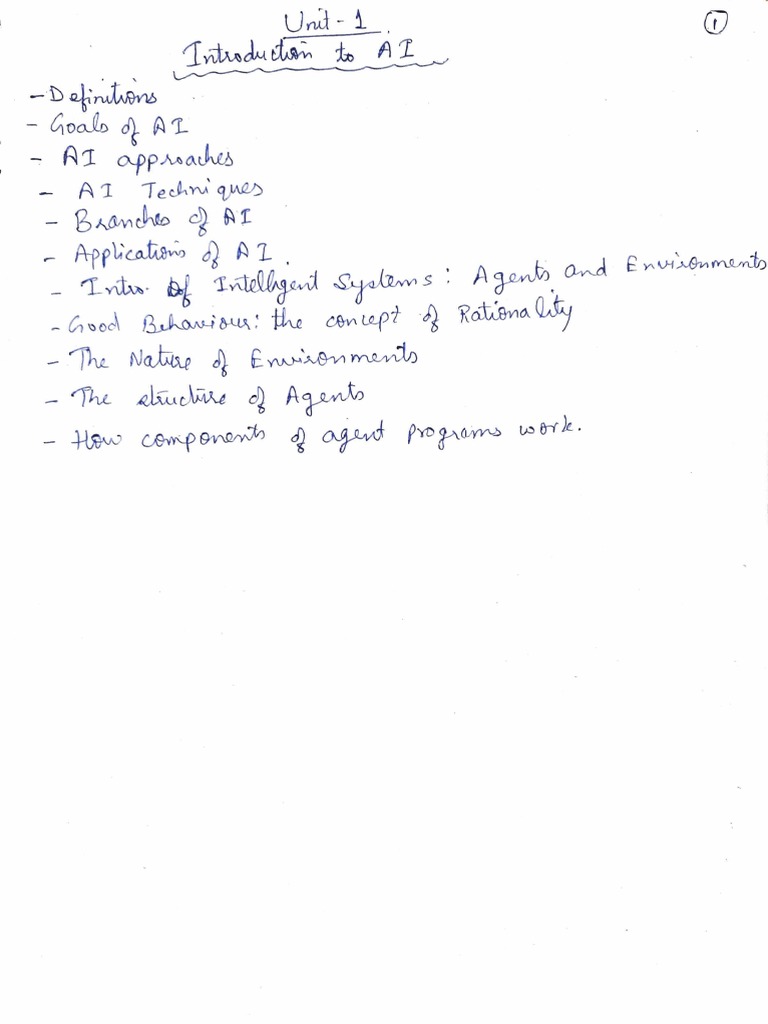 Unit - 1
①
Introduction to AI
- Definitions
- Goals of AI
- AI approaches
- AI Techniques
- Branches of AI
- Applications of AI.
- Intro. of Intelligent Systems: Agents and Environments
- Good Behaviour: the concept of Rationality
- The Nature of Environments
- The structure of Agents
- How components of agent programs work.